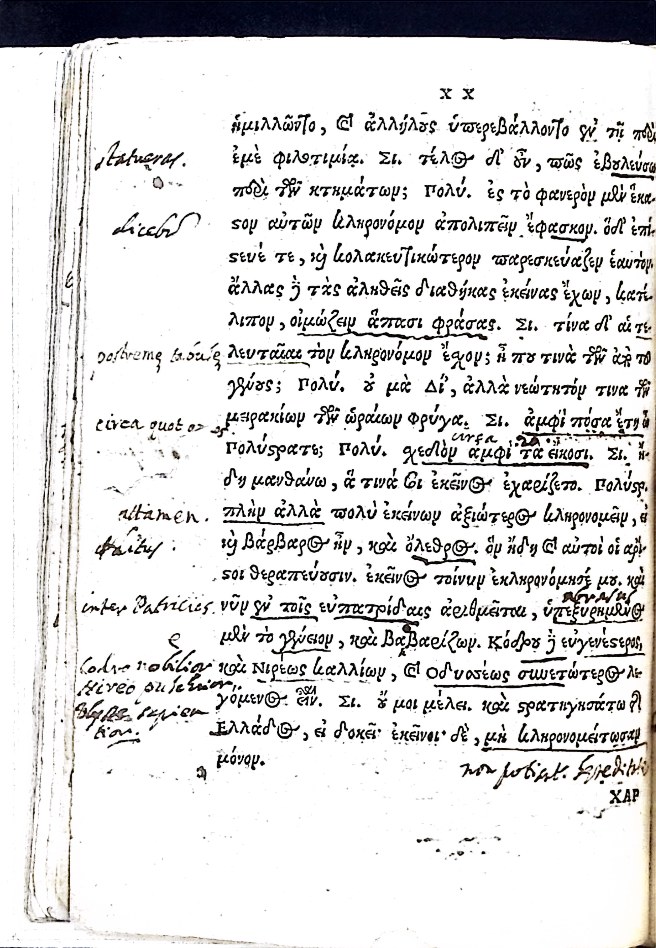 X X
ἡμιλλῶντο, καὶ ἀλλήλους ὑπερεβάλλοντο ἐν τῇ περὶ
statueras.
ἐμὲ φιλοτιμίᾳ. Σι. τέλος δ' οὖν, πῶς ἐβουλεύσω
περὶ τῶν κτημάτων; Πολύ. ἐς τὸ φανερὸν μὲν ἕκα-
στον αὐτῶν κληρονόμον ἀπολιπεῖν ἔφασκον. ὁ δ' ἐπί-
στευέ τε, καὶ κολακευτικώτερον παρεσκεύαζεν ἑαυτόν.
ἄλλας δὲ τὰς ἀληθεῖς διαθήκας ἐκείνας ἔχων, κατέ-
λιπον, οἰμώζειν ἅπασι φράσας. Σι. τίνα δ' αἱ τε-
λευταῖαι τὸν κληρονόμον ἔσχον; ἦ που τινὰ τῶν ἀπὸ τοῦ
γένους; Πολύ. οὐ μὰ Δί', ἀλλὰ νεώτητόν τινα τῶν
μειρακίων τῶν ὡραίων φρύγα. Σι. ἀμφὶ πόσα ἔτη ὦ
circa quot
circa
Πολύστρατε; Πολύ. σχεδὸν ἀμφὶ τὰ εἴκοσι. Σι. ἤ-
δη μανθάνω, ἅ τινά σοι ἐκεῖνος ἐχαρίζετο. Πολύστρ.
attamen.
πλὴν ἀλλὰ πολὺ ἐκείνων ἀξιώτερος κληρονομεῖν, εἰ
καὶ βάρβαρος ἦν, καὶ ὄλεθρος. ὃν ἤδη καὶ αὐτοὶ οἱ ἄρι-
στοι θεραπεύουσιν. ἐκεῖνος τοίνυν ἐκληρονόμησέ μου. καὶ
inter Patricios.
νῦν ἐν τοῖς εὐπατρίδαις ἀριθμεῖται, ὑπεξυρημένος
μὲν τὸ γένειον, καὶ βαβαρίζων. Κόδρου δὲ εὐγενέστερος,
Codro nobilior
καὶ Νιρέως καλλίων, καὶ Οδυσσέως συνετώτερος λε-
Nireo pulchrior
γόμενος εἶναι. Σι. οὔ μοι μέλει. καὶ στρατηγησάτω τῆς
Ἑλλάδος, εἰ δοκεῖ· ἐκεῖνοι δὲ, μὴ κληρονομείτωσαν
μόνον.
ΧΑΡ